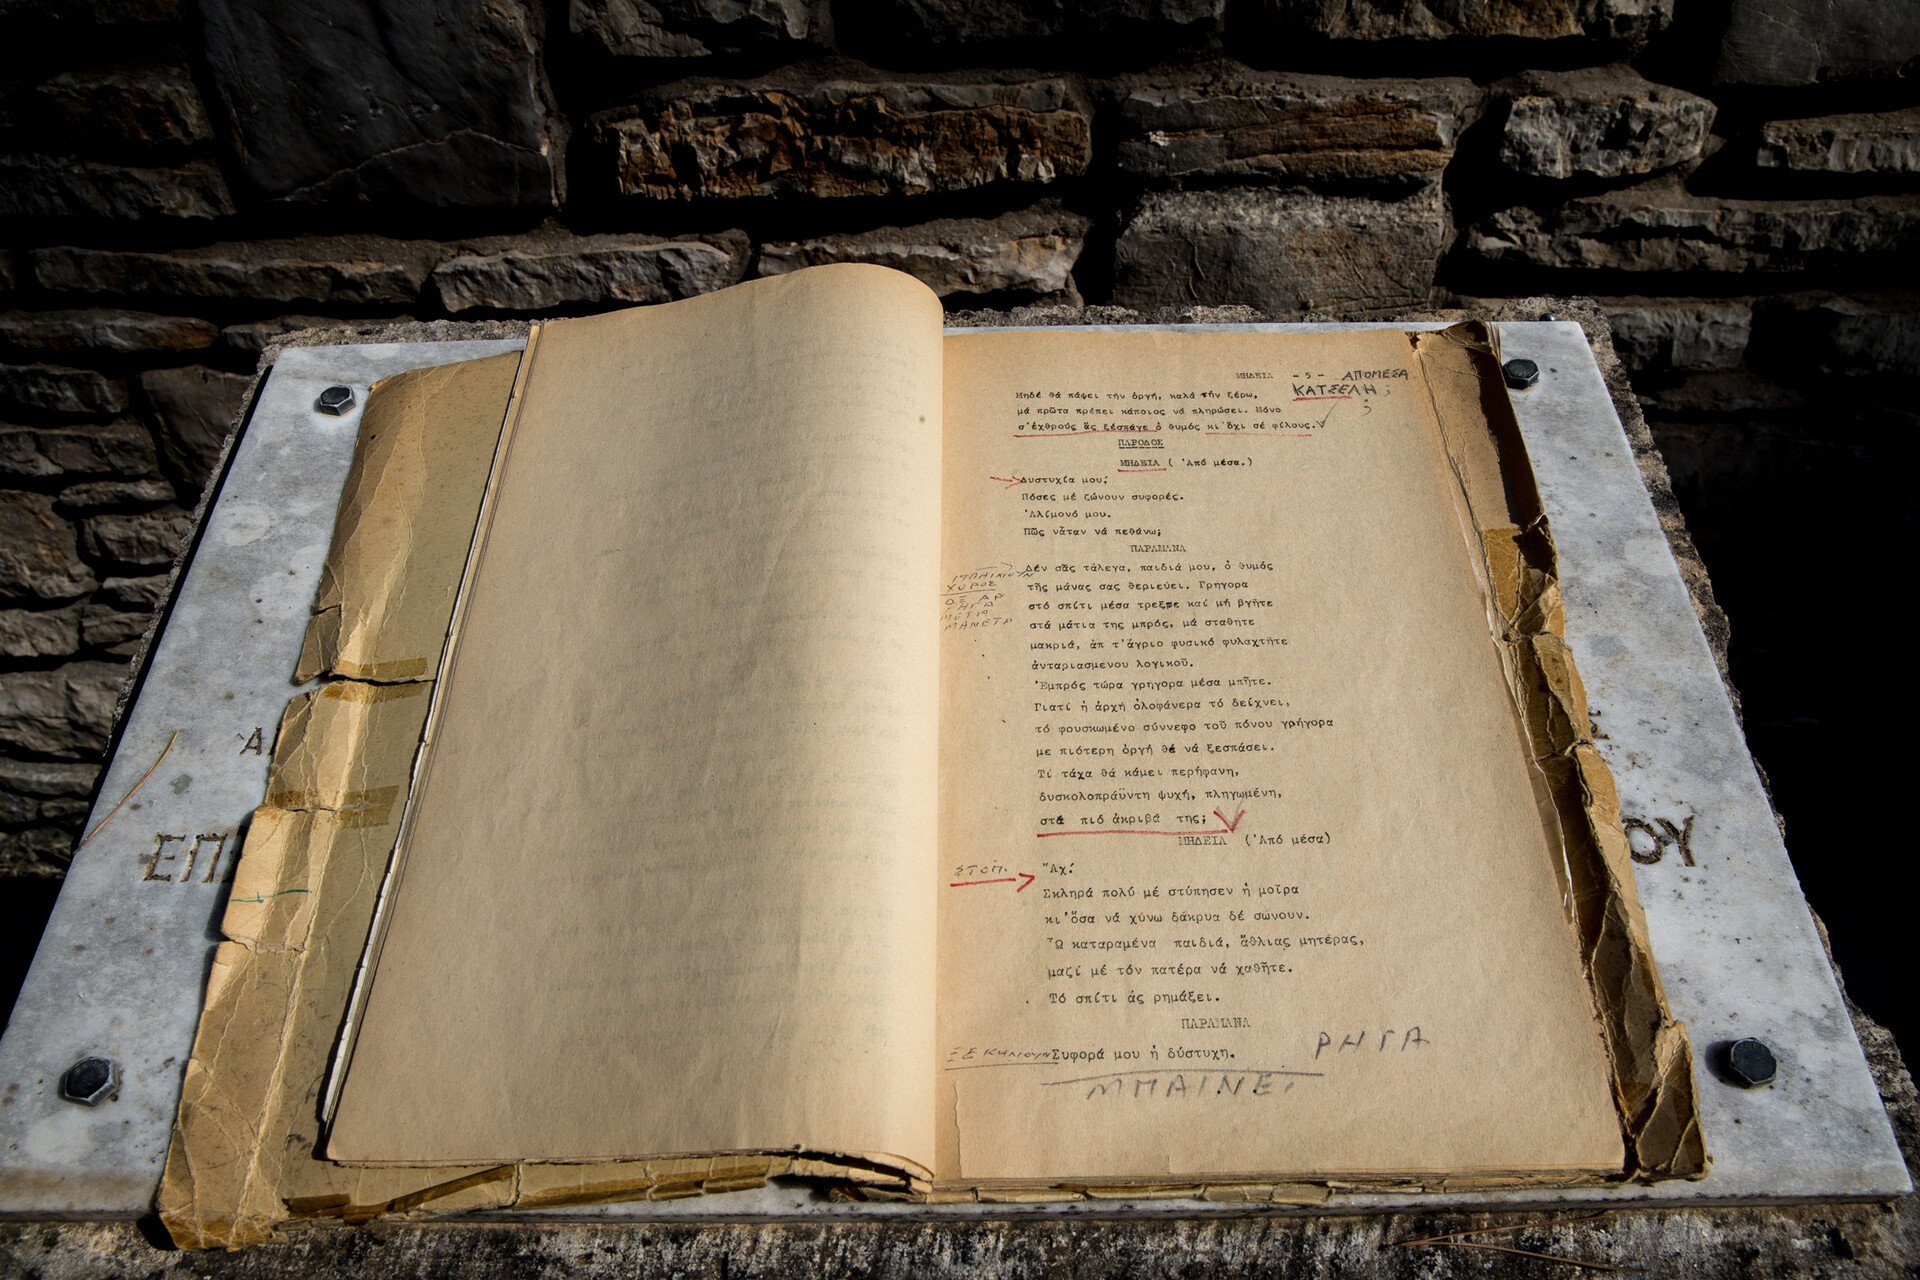 ΜΗΔΕΙΑ - 5 - ΑΠΟΜΕΣΑ
ΚΑΤΣΕΛΗ ;
Μηδέ θά πάψει τήν ὀργή, καλά τήν ξέρω,
μά πρῶτα πρέπει κάποιος νά πληρώσει. Μόνο
σ'ἐχθρούς ἄς ξέσπαγε ὁ θυμός κι'ὄχι σέ φίλους.
ΠΑΡΟΔΟΣ
ΜΗΔΕΙΑ ( 'Από μέσα.)
Δυστυχία μου!
Πόσες μέ ζώνουν συφορές.
'Αλίμονό μου.
Πῶς νἆταν νά πεθάνω;
ΠΑΡΑΜΑΝΑ
ΜΠΑΙΝΟΥΝ
ΧΟΡΟΣ
ΔΕ ΑΡ
ΡΗΓΑ
ΜΑΝΕΤΑ
Δέν σᾶς τἄλεγα, παιδιά μου, ὁ θυμός
τῆς μάνας σας θεριεύει. Γρηγορα
στό σπίτι μέσα τρεξτε καί μή βγῆτε
στά μάτια της μπρός, μά σταθῆτε
μακριά, ἀπ τ'ἄγριο φυσικό φυλαχτῆτε
ἀνταριασμενου λογικοῦ.
'Εμπρός τώρα γρηγορα μέσα μπῆτε.
Γιατί ἡ ἀρχή ὁλοφάνερα τό δείχνει,
τό φουσκωμένο σύννεφο τοῦ πόνου γρήγορα
με πιότερη ὀργή θέ νά ξεσπάσει.
Τί τάχα θά κάμει περήφανη,
δυσκολοπράϋντη ψυχή, πληγωμένη,
στά πιό ἀκριβά της;
ΜΗΔΕΙΑ ('Από μέσα)
ΣΤΟΠ.
"Αχ!
Σκληρά πολύ μέ στύπησεν ἡ μοῖρα
κι'ὅσα νά χύνω δάκρυα δέ σώνουν.
Ὦ καταραμένα παιδιά, ἄθλιας μητέρας,
μαζί μέ τόν πατέρα νά χαθῆτε.
Τό σπίτι ἀς ρημάξει.
ΠΑΡΑΜΑΝΑ
ΞΕΚΙΝΟΥΝ Συφορά μου ἡ δύστυχη. ΡΗΓΑ
ΜΠΑΙΝΕΙ
ΕΠ
ΟΥ